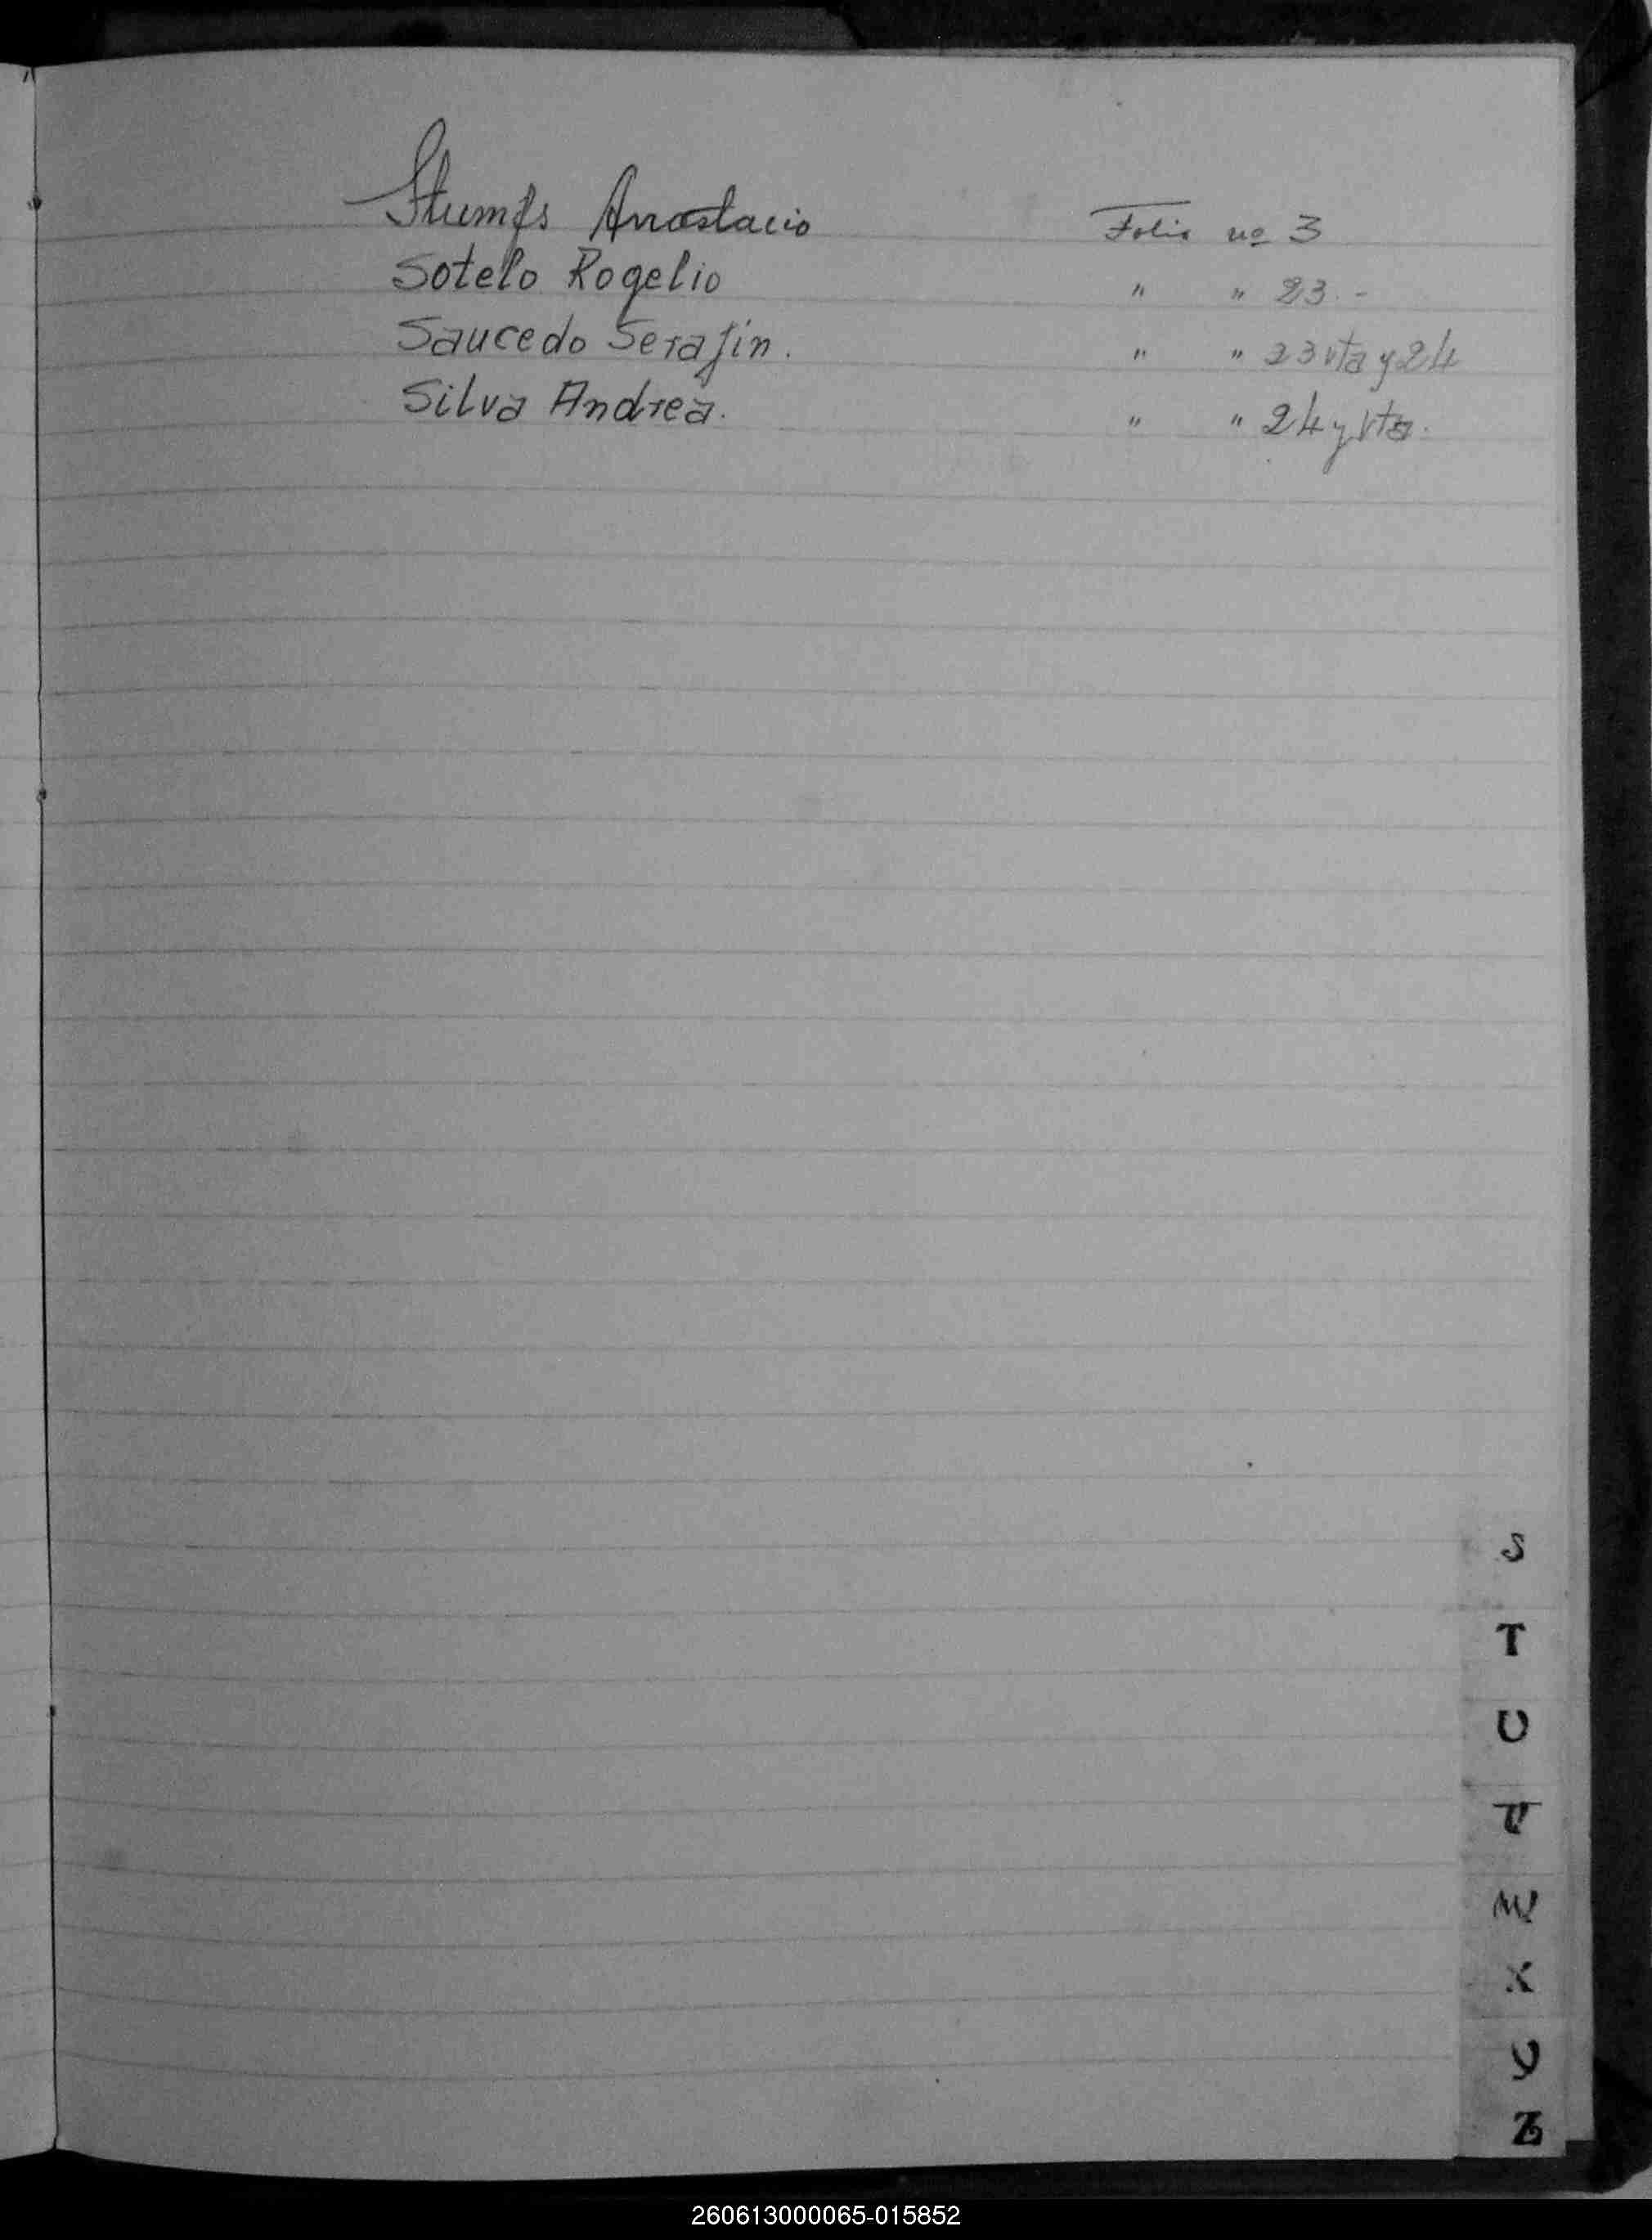 Stumfs Anastacio Folio nº 3
Sotelo Rogelio " " 23.-
Saucedo Serafin. " " 23 vta y 24
Silva Andrea. " " 24 y vta.
S
T
U
V
W
X
Y
Z
260613000065-015852